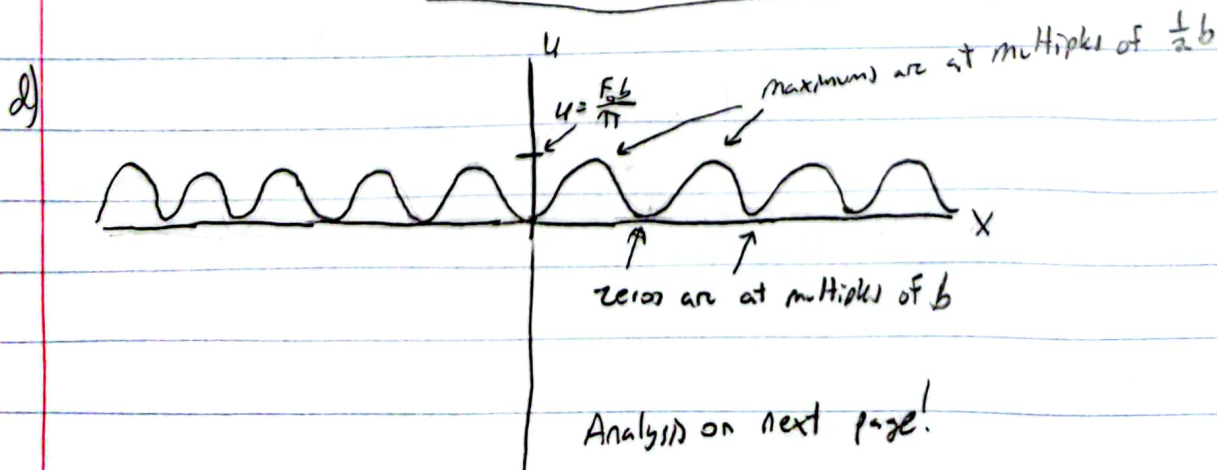 d)
u
u = F₀b/π
maximums are at multiples of ½ b
X
zeros are at multiples of b
Analysis on next page!